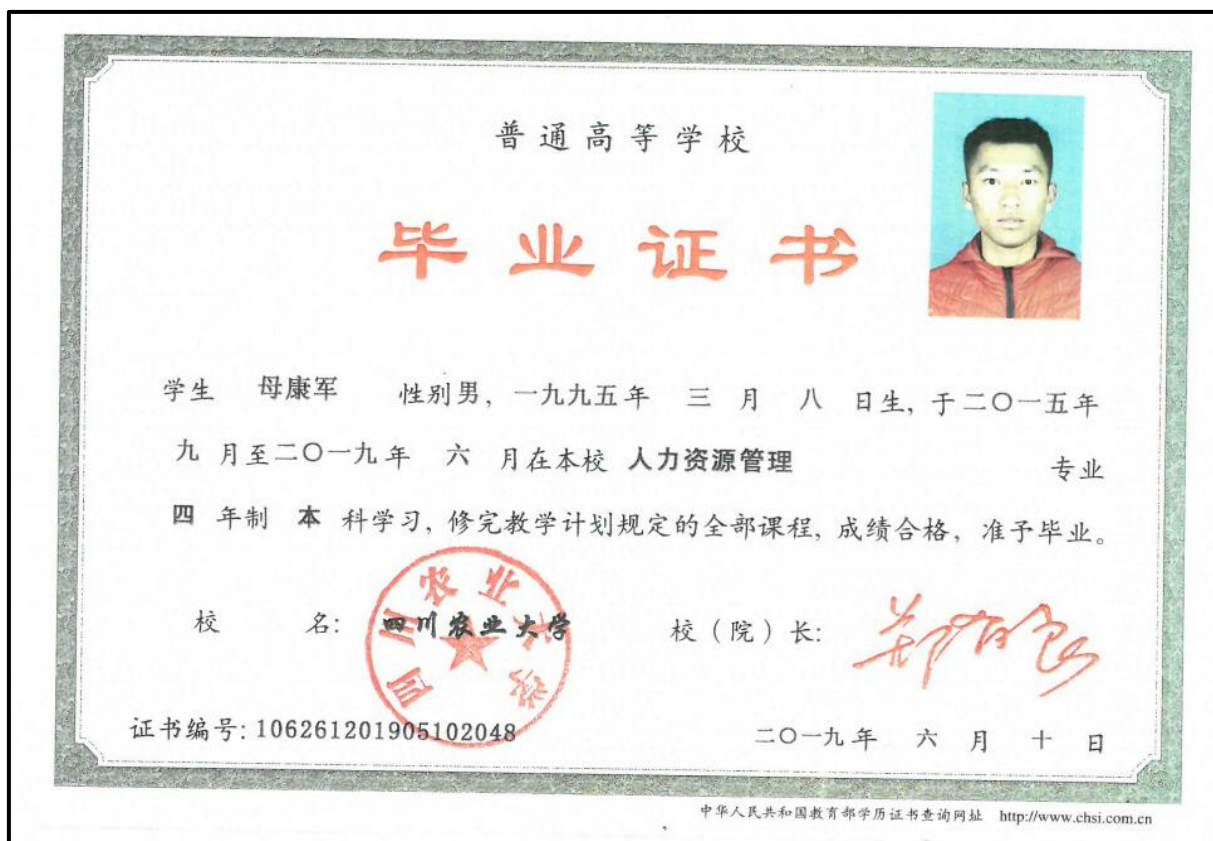 普通高等学校
毕业证书
学生 母康军 性别男，一九九五年 三 月 八 日生，于二〇一五年
九 月至二〇一九年 六 月在本校 人力资源管理 专业
四 年制 本 科学习，修完教学计划规定的全部课程，成绩合格，准予毕业。
校 名： 四川农业大学 校（院）长： 郑有良
四川农业大学
证书编号：106261201905102048 二〇一九年 六 月 十 日
中华人民共和国教育部学历证书查询网址 http://www.chsi.com.cn